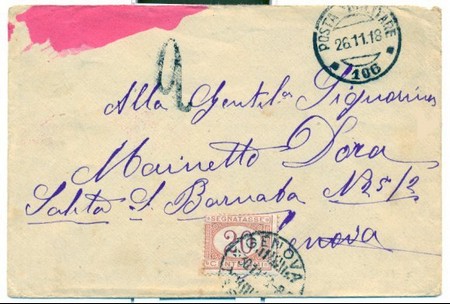 POSTA MILITARE
26.11.18
* 106 *
Alla Gentil.a Signorina
Mainetto Dora
Salita S. Barnaba N 25/2
SEGNATASSE
20
CENTESIMI
GENOVA
Genova